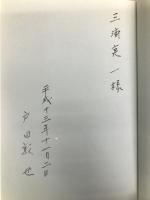 三浦寛一様
平成十三年十一月二日
戸田 也